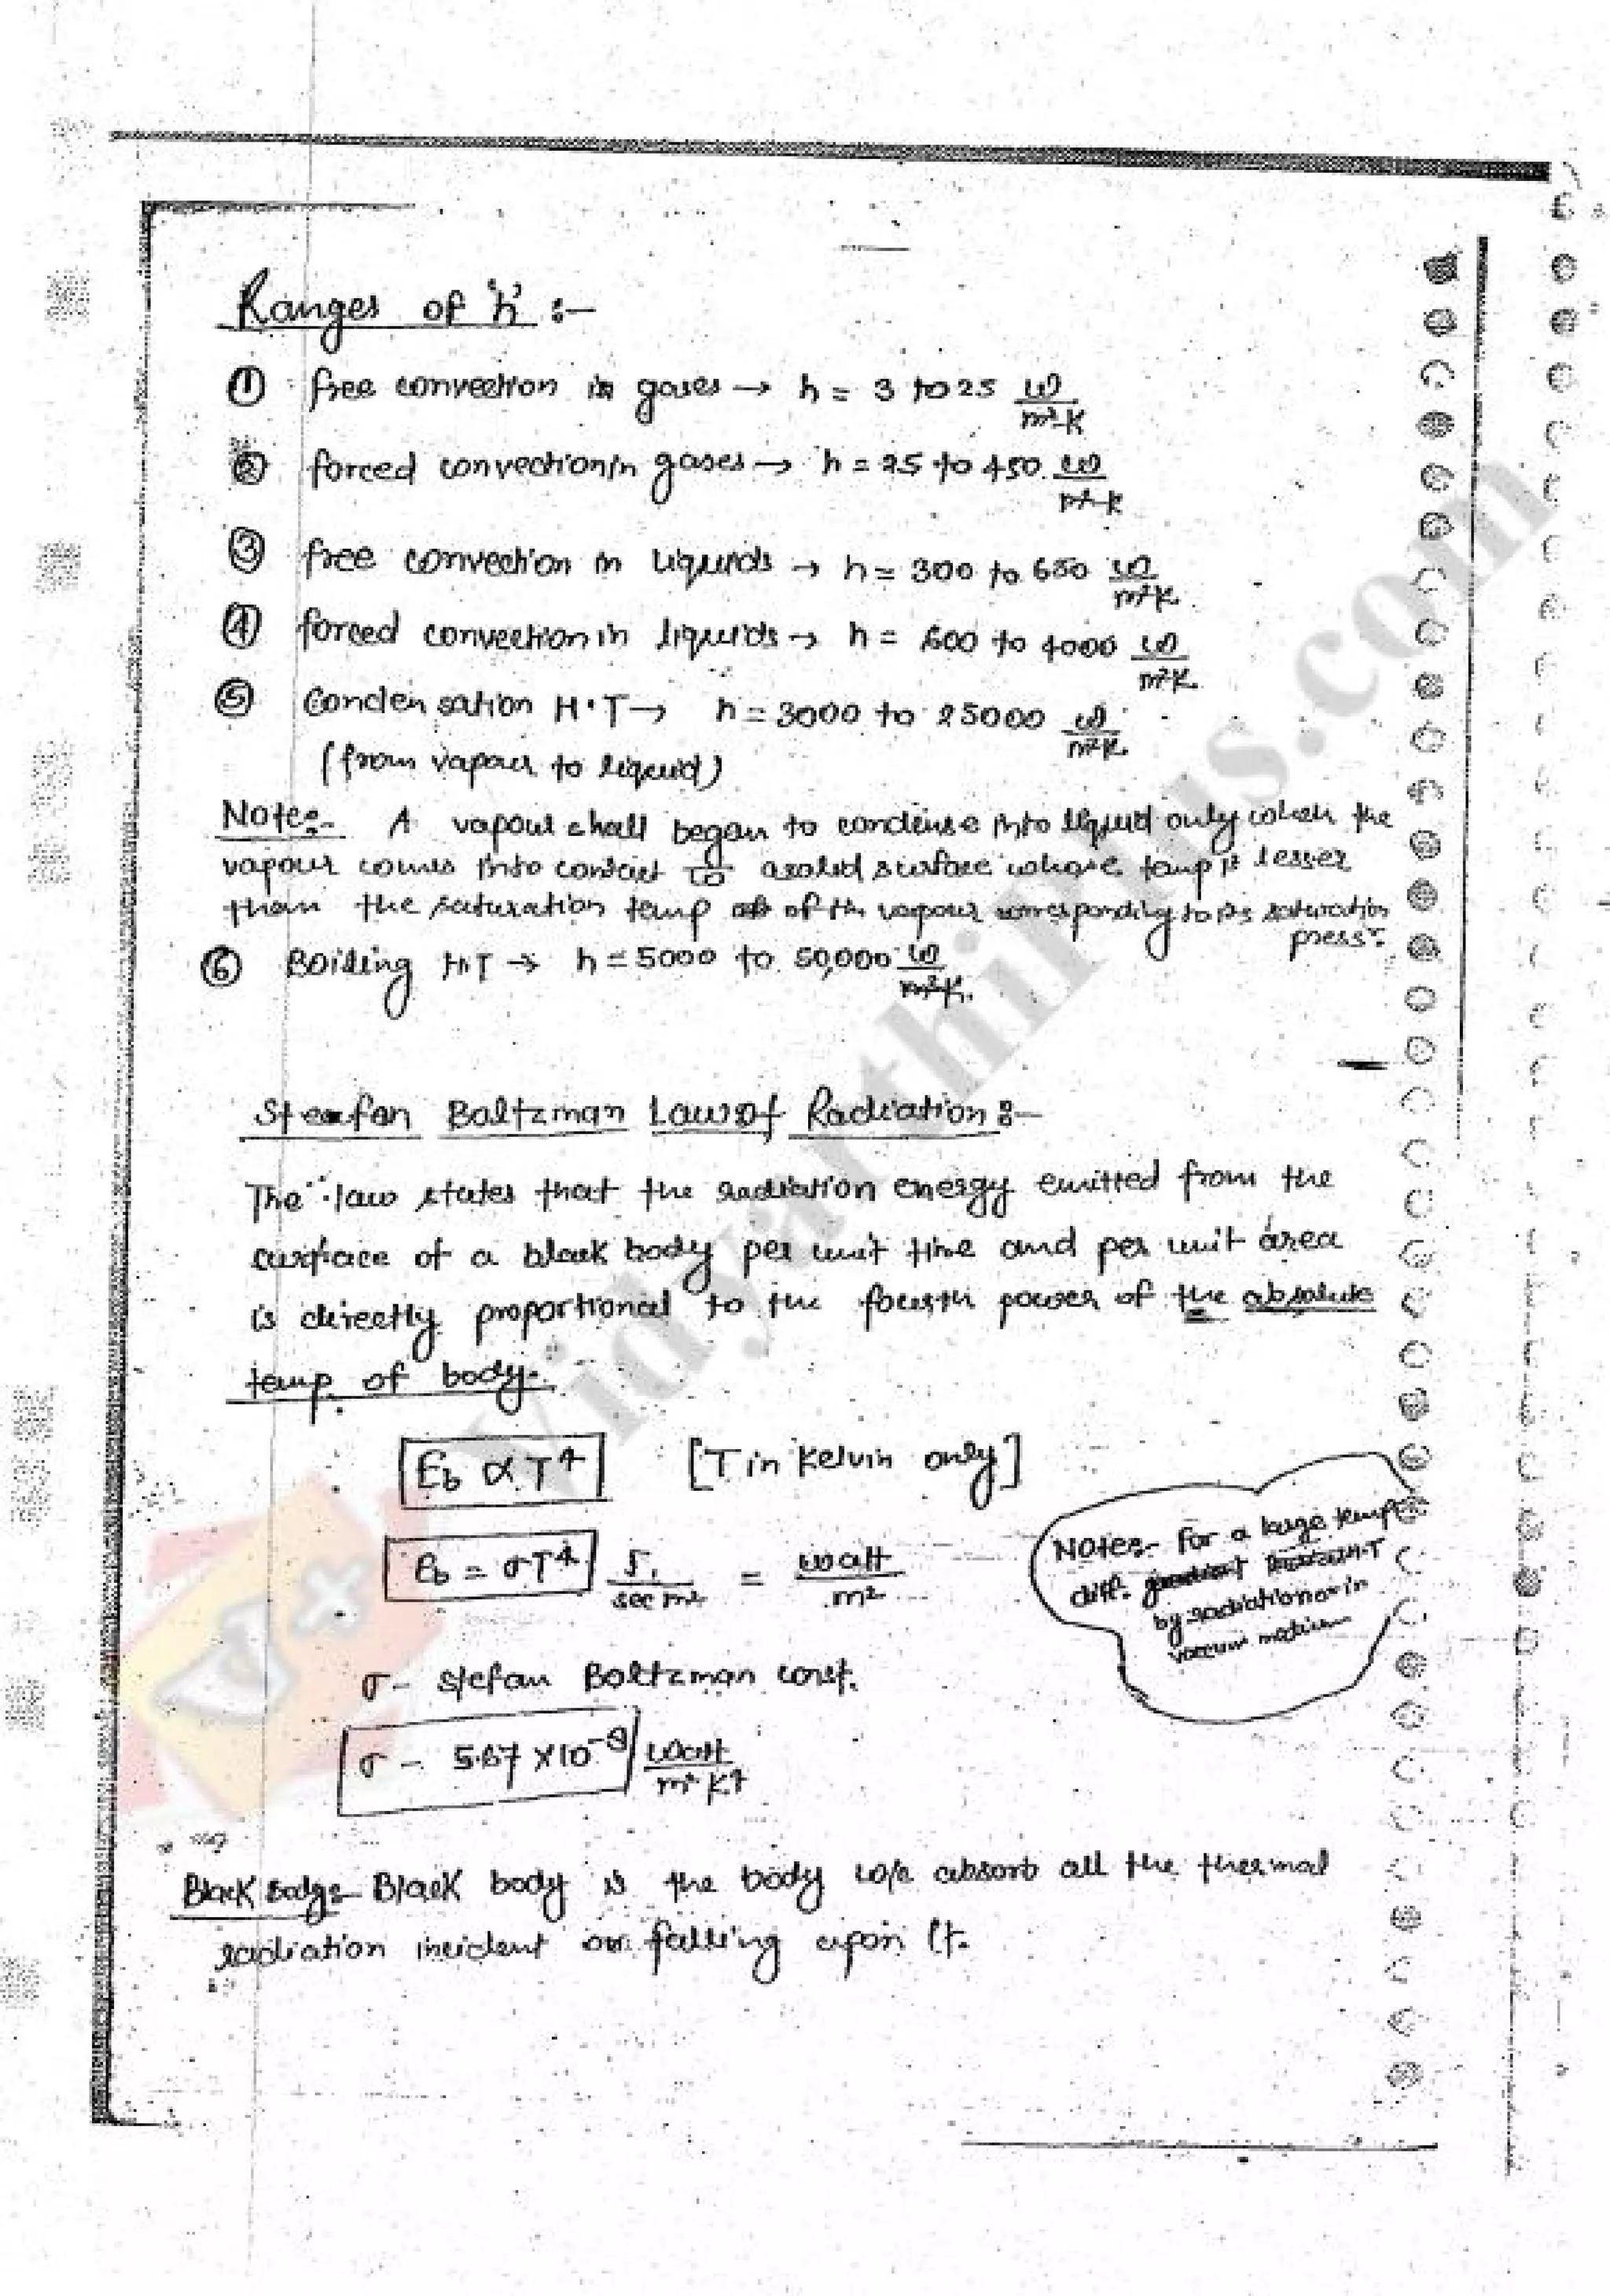 Ranges of 'h' :-
① free convection in gases → h = 3 to 25 W/m²-K
② forced convection in gases → h = 25 to 450 W/m²-K
③ free convection in liquids → h = 300 to 650 W/m²K.
④ forced convection in liquids → h = 600 to 4000 W/m²K.
⑤ Condensation H.T → h = 3000 to 25000 W/m²K.
(from vapour to liquid)
Note:- A vapour shall began to condense into liquid only when the
vapour comes into contact to a solid surface whose temp is lesser
than the saturation temp of the vapour corresponding to its saturation
press.
⑥ Boiling H.T → h = 5000 to 50,000 W/m²K.
Stefan Boltzman Law of Radiation :-
The law states that the radiation energy emitted from the
surface of a black body per unit time and per unit area
is directly proportional to the fourth power of the absolute
temp. of body.
Eb ∝ T⁴ [T in Kelvin only]
Eb = σT⁴ J/sec m² = watt/m²
Note:- For a large temp.
diff. H.T
by radiation or in
vaccum medium
σ - Stefan Boltzman const.
σ - 5.67 × 10⁻⁸ Watt/m² K⁴
Black Body:- Black body is the body w/c absorb all the thermal
radiation incident or falling upon it.
VidyarthiPlus.com